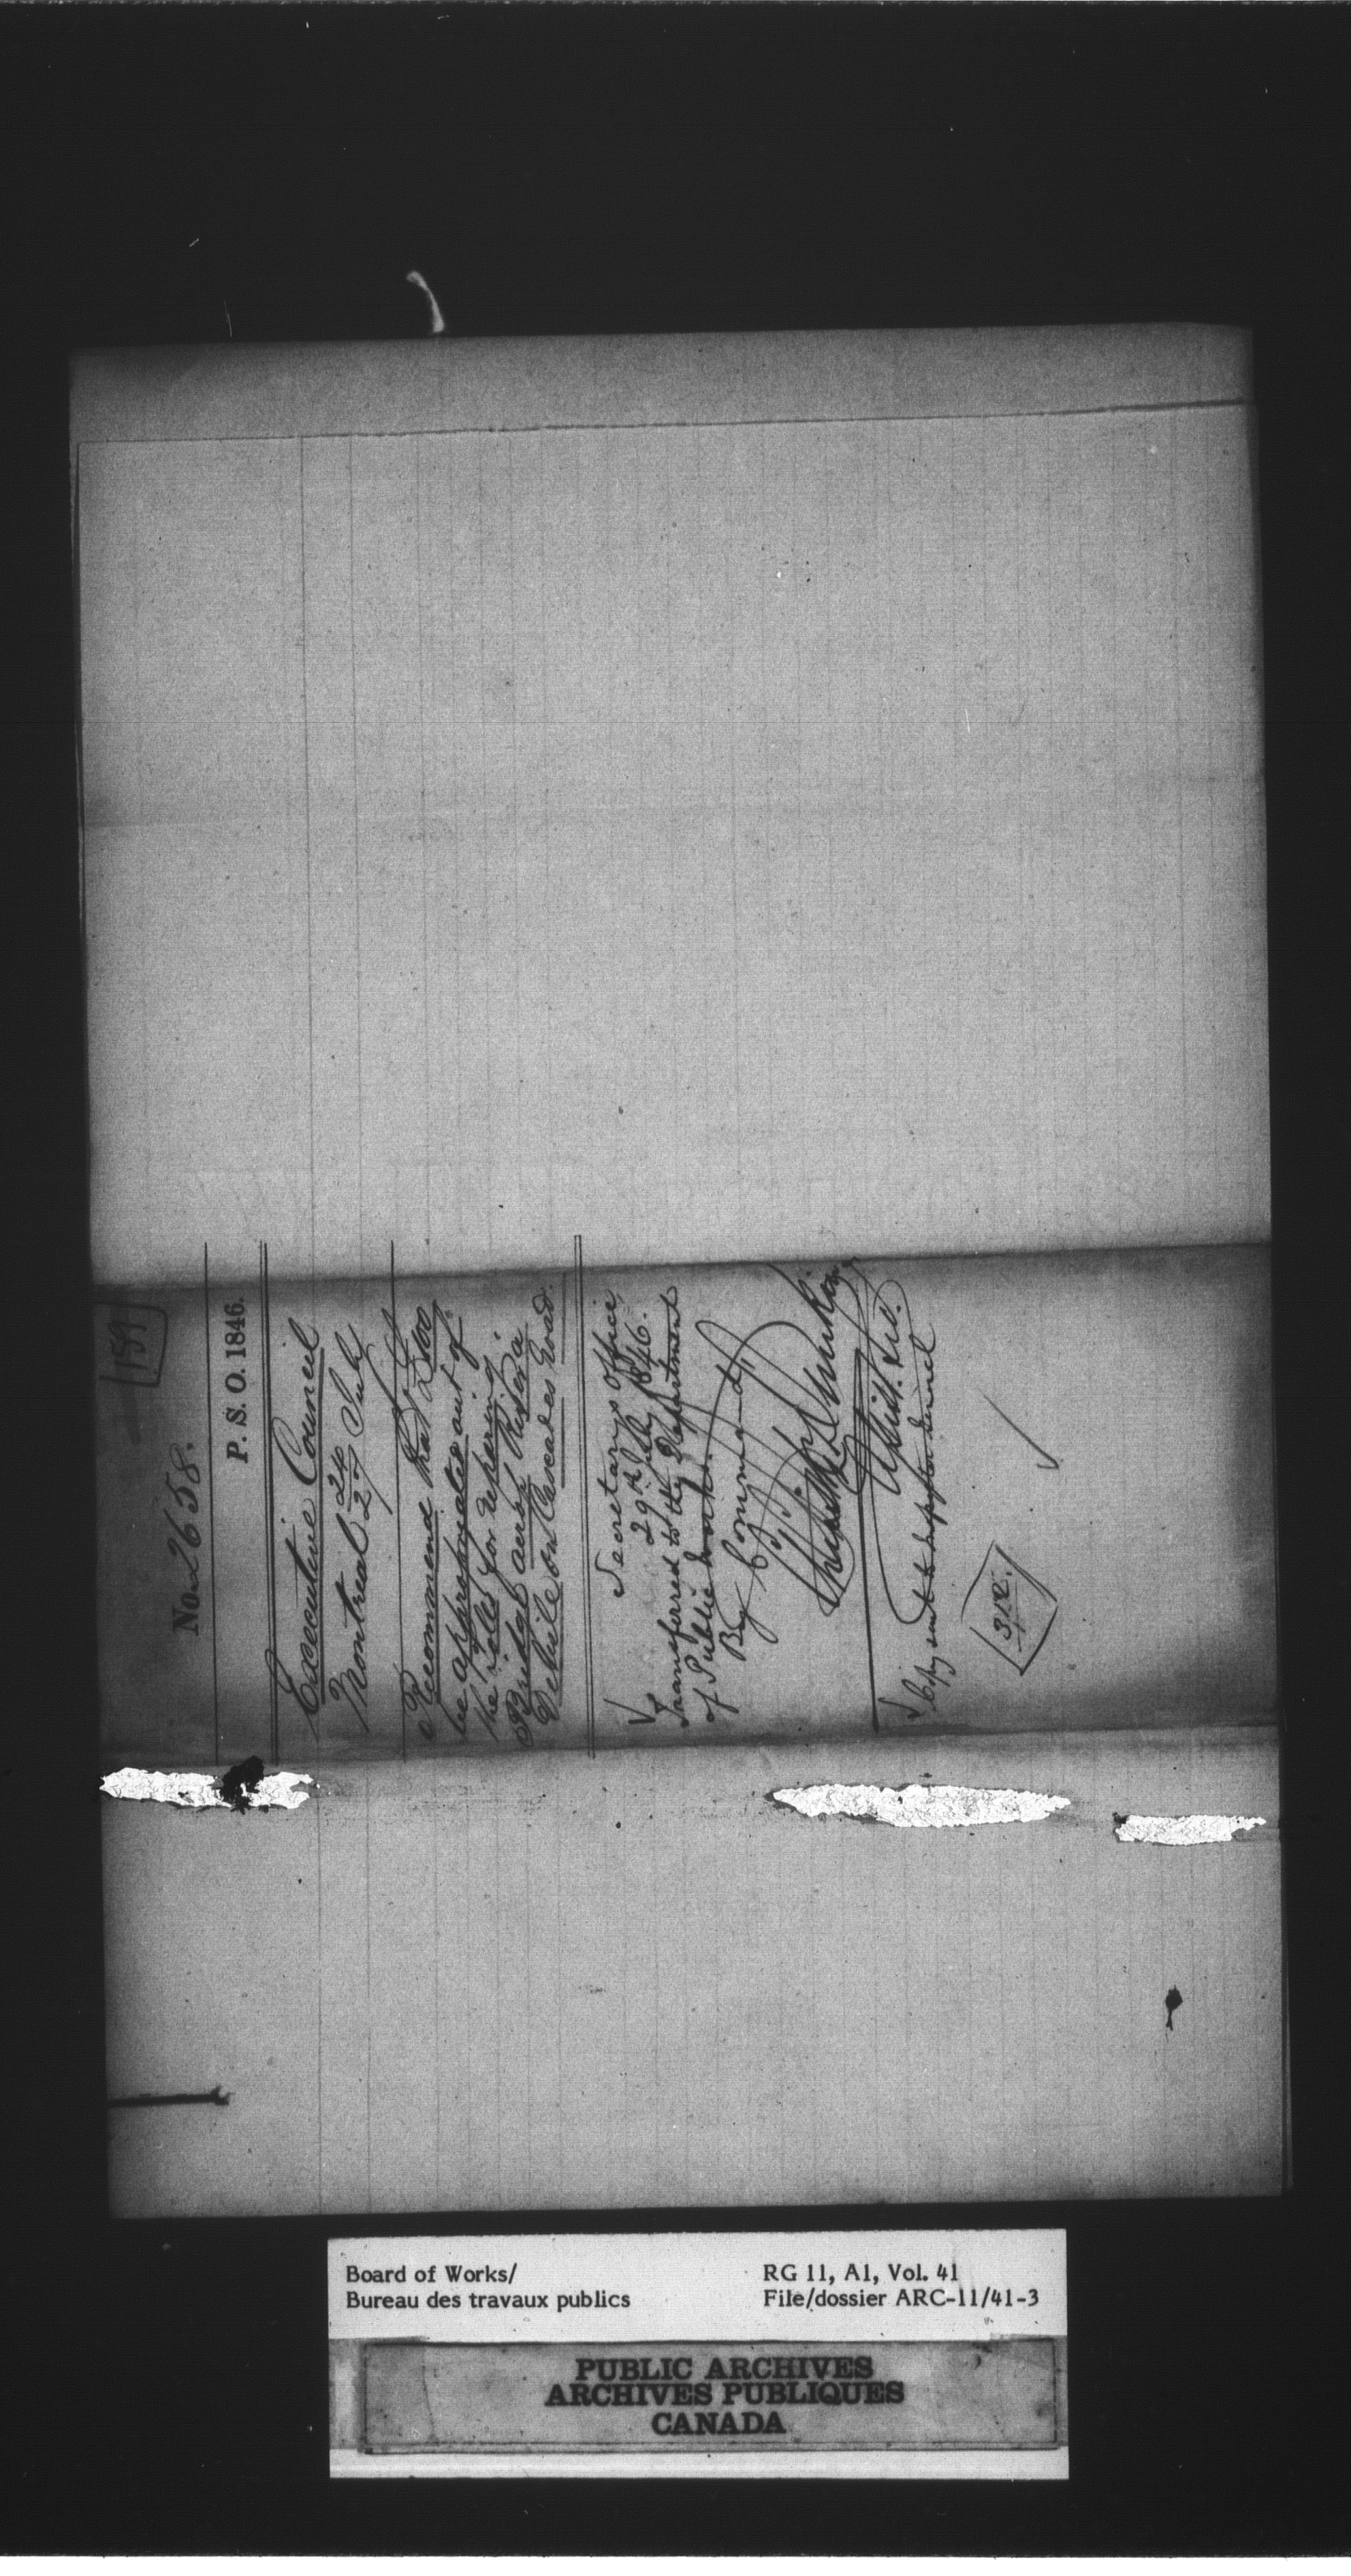 159
No. 2658.
P. S. O. 1846.
Executive Council
Montreal 24 July
27
Recommend that £400
be appropriated out of
the Tolls for repairing
Bridge across Rivière à
Delisle on Cascades Road.
Secretary's Office,
29th July 1846.
Transferred to the Department
of Public Works.
By Command,
Asst. Sec.
Copy sent to Inspector General
312.
Board of Works/
Bureau des travaux publics
RG 11, A1, Vol. 41
File/dossier ARC-11/41-3
PUBLIC ARCHIVES
ARCHIVES PUBLIQUES
CANADA